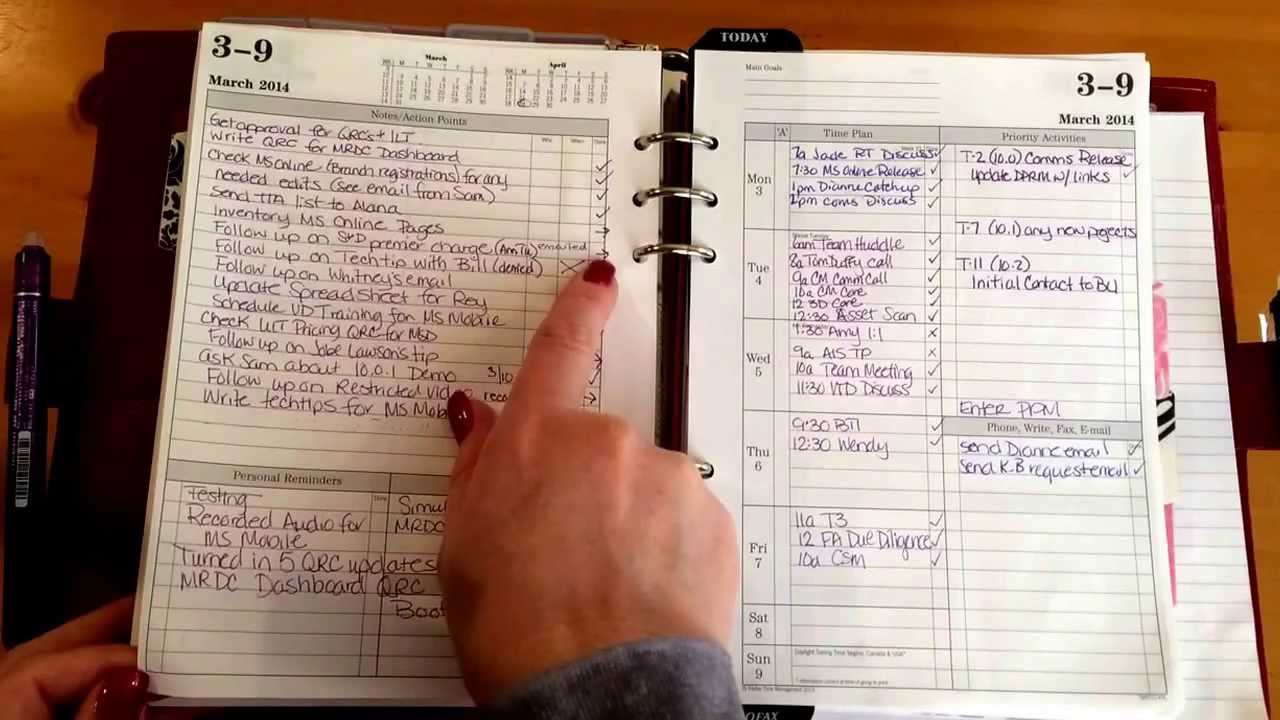 3-9
March 2014
March
April
Notes/Action Points
Get approval for QRC's + ILT
Write QRC for MRDC Dashboard
Check MS Online (Branch registrations) for any
needed edits (see email from Sam)
Send TTA list to Alana
Inventory MS Online Pages
Follow up on S+D premier charge (AmTu) emailed
Follow up on Techtip with Bill (denied)
Follow up on Whitney's email
Update Spreadsheet for Rey
Schedule VD Training for MS Mobile
Check Pricing QRC for MSD
Follow up on Jobe Lawson's tip
ask Sam about 10.0.1 Demo 3/10
Follow up on Restricted video
Write techtips for MS
Personal Reminders
Testing
Recorded Audio for
MS Mobile
Turned in 5 QRC updates
MRDC Dashboard QRC
MRDC
TODAY
Main Goals
3-9
March 2014
'A'
Time Plan
Priority Activities
Mon
3
7a Jade RT Discuss
7:30 MS Online Release
1pm Dianne Catchup
2pm coms Discuss
T-2 (10.0) Comms Release
update DPRM w/ links
T-7 (10.1) any new projects
Tue
4
6am Team Huddle
8a Tom Duffy call
9a CM Comm Call
10a CM Core
12:30 Core
12:30 Asset Scan
T-11 (10.2)
Initial Contact to BU
Wed
5
7:30 Amy 1:1
9a AIS TP
10a Team Meeting
11:30 VTD Discuss
Enter PPM
Phone, Write, Fax, E-mail
Thu
6
9:30 BTI
12:30 Wendy
send Dianne email
Send K.B request email
Fri
7
11a T3
12 FA Due Diligence
10a CSM
Sat
8
Sun
9
Daylight Saving Time begins, Canada & USA*